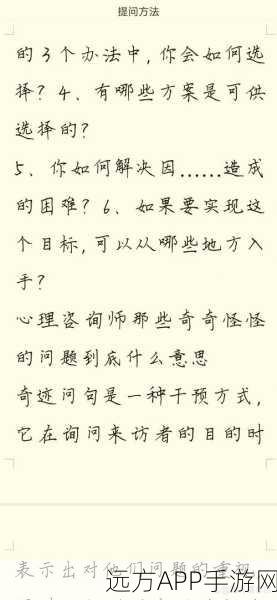 提问方法
的3个办法中,你会如何选
择?4、有哪些方案是可供
选择的?
5、你如何解决因……造成
的困难?6、如果要实现这
个目标,可以从哪些地方入
手?
心理咨询师那些奇奇怪怪
的问题到底什么意思
奇迹问句是一种干预方式,
它在询问来访者的目的时
表示出对他们问题的重视
远方APP手游网